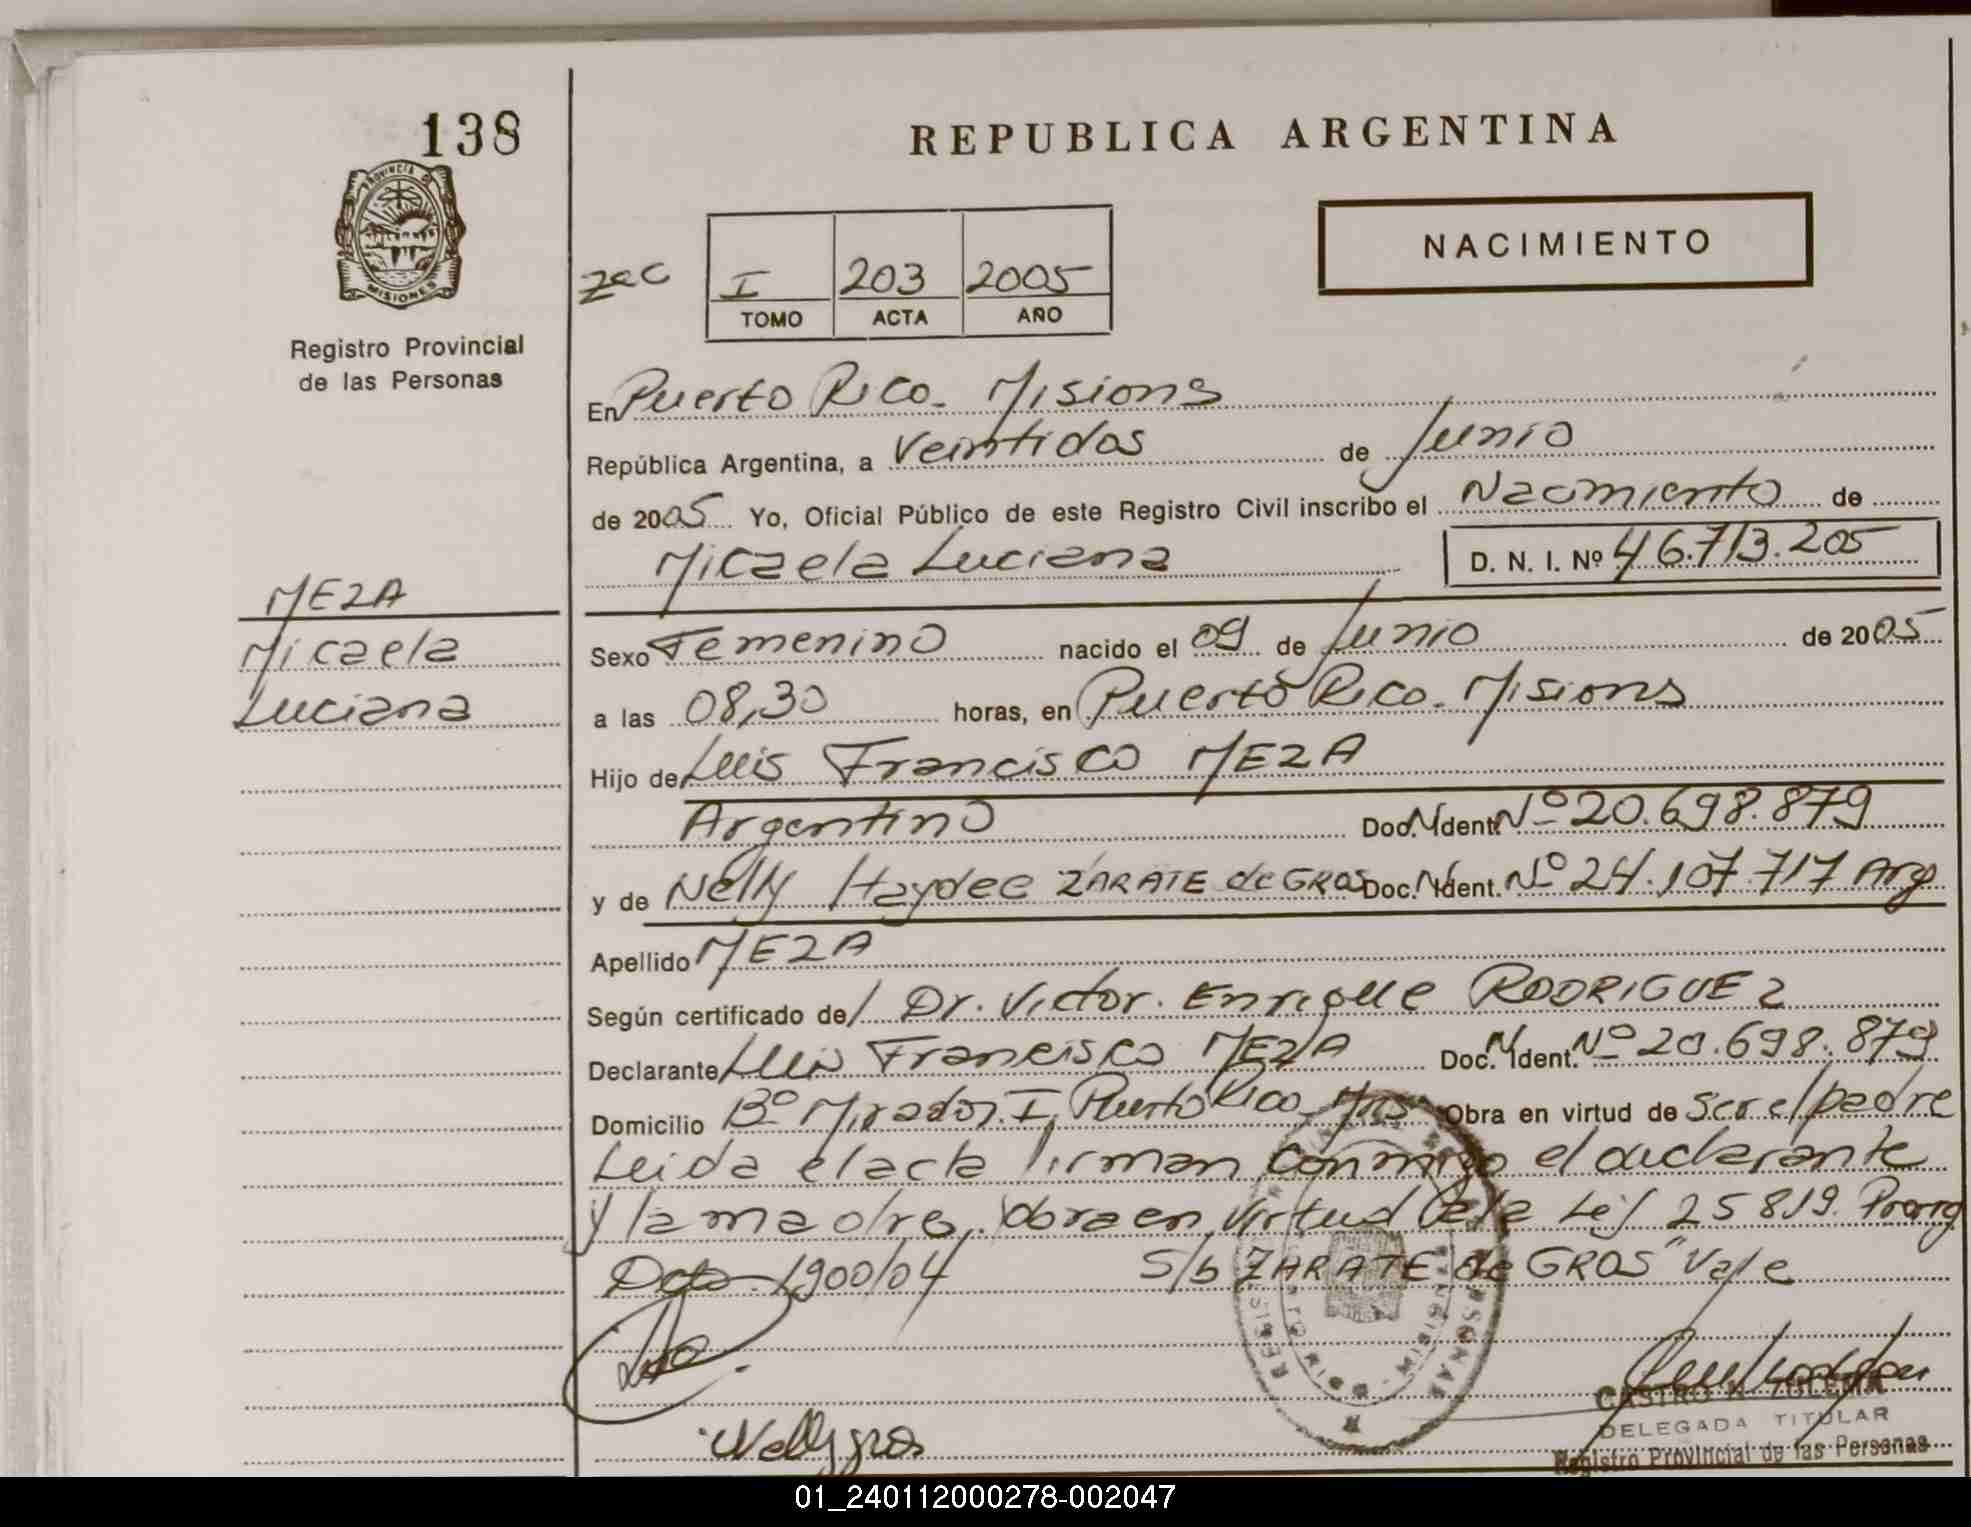 138
PROVINCIA DE
MISIONES
Registro Provincial
de las Personas
REPUBLICA ARGENTINA
NACIMIENTO
I 203 2005
TOMO ACTA AÑO
En Puerto Rico. Misions
República Argentina, a Veintidos de Junio
de 2005 Yo, Oficial Público de este Registro Civil inscribo el Nacimiento de
Micaela Luciana D. N. I. Nº 46.713.205
MEZA
Micaela
Luciana
Sexo Femenino nacido el 09 de Junio de 2005
a las 08,30 horas, en Puerto Rico. Misions
Hijo de Luis Francisco MEZA
Argentino Doc. Ident. Nº 20.698.879
y de Nelly Haydee ZARATE de GROS Doc. Ident. Nº 24.107.717 Arg
Apellido MEZA
Según certificado de/ Dr. Victor. Enrique RODRIGUEZ
Declarante Luis Francisco MEZA Doc. Ident. Nº 20.698.879
Domicilio Bº Mirador I, Puerto Rico Mns Obra en virtud de ser el padre
Leida el acta firman conmigo el declarante
y la madre. Obra en virtud de la Ley 25819. Prorrg
Dcto 1900/04 S/b ZARATE de GROS" Vale
Nelly gros
CASTRO N.
DELEGADA TITULAR
Registro Provincial de las Personas
01_240112000278-002047